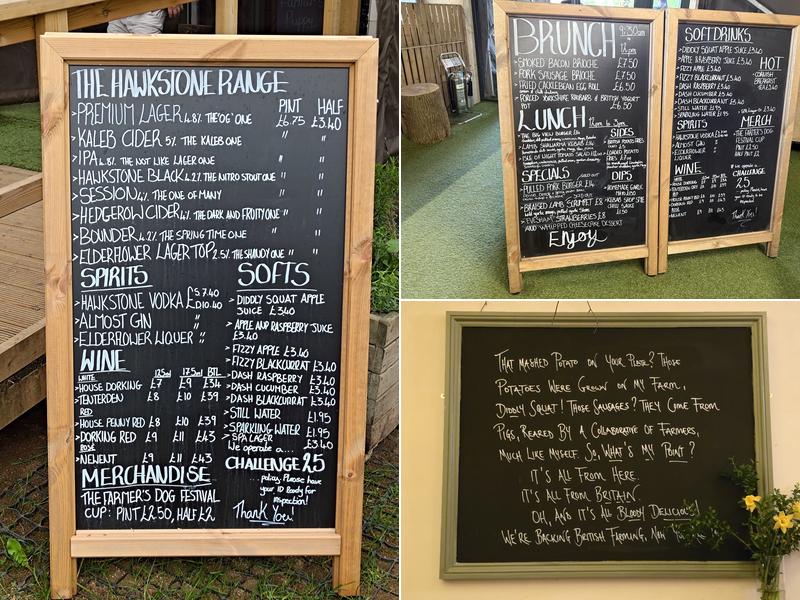 THE HAWKSTONE RANGE
PINT HALF
PREMIUM LAGER 4.8% THE 'OG' ONE £6.75 £3.40
KALEB CIDER 5% THE KALEB ONE " "
IPA 4.8% THE NOT LIKE LAGER ONE " "
HAWKSTONE BLACK 4.2% THE NITRO STOUT ONE " "
SESSION 4% THE ONE OF MANY " "
HEDGEROW CIDER 4% THE DARK AND FRUITY ONE " "
BOUNDER 4.2% THE SPRING TIME ONE " "
ELDERFLOWER LAGER TOP 2.5% THE SHANDY ONE " "
SPIRITS
HAWKSTONE VODKA £S 7.40 D10.40
ALMOST GIN "
ELDERFLOWER LIQUER "
WINE
WHITE 125ml 175ml BTL
HOUSE DORKING £7 £9 £34
TENTERDEN £8 £10 £39
RED
HOUSE PENNY RED £8 £10 £39
DORKING RED £9 £11 £43
ROSÉ
NEWENT £9 £11 £43
MERCHANDISE
THE FARMER'S DOG FESTIVAL
CUP: PINT £2.50, HALF £2
SOFTS
DIDDLY SQUAT APPLE
JUICE £3.40
APPLE AND RASPBERRY JUICE
£3.40
FIZZY APPLE £3.40
FIZZY BLACKCURRAT £3.40
DASH RASPBERRY £3.40
DASH CUCUMBER £3.40
DASH BLACKCURRAT £3.40
STILL WATER £1.95
SPARKLING WATER £1.95
SPA LAGER £3.40
We operate a...
CHALLENGE 25
...policy, Please have
your ID Ready for
inspection!
Thank You!
BRUNCH 9:30am
12pm
SMOKED BACON BRIOCHE £7.50
PORK SAUSAGE BRIOCHE £7.50
FRIED CACKLEBEAN EGG ROLL £6.50
FORCED YORKSHIRE RHUBARB & BRITISH YOGURT
POT £6.50
LUNCH
THE BIG VIEW BURGER £14
LAMB SHAWARMA KEBAB £14
ISLE OF WIGHT TOMATO SALAD
SIDES
BRITISH POTATO FRIES
£5
LOADED POTATO
FRIES
SPECIALS
PULLED PORK BURGER £14
BRAISED LAMB SCRUMPET £8
EVESHAM STRAWBERRIES £8
AND WHIPPED CHEESECAKE DESSERT
DIPS
HOMEMADE GARLIC
MAYO £1.50
KEBAB SHOP STYLE
CHILLI SAUCE
£1.50
Enjoy
SOFT DRINKS
DIDDLY SQUAT APPLE JUICE £3.40
APPLE & RASPBERRY JUICE £3.40
FIZZY APPLE £3.40
FIZZY BLACKCURRANT £3.40
DASH RASPBERRY £3.40
DASH CUCUMBER £3.40
DASH BLACKCURRANT £3.40
STILL WATER £1.95
SPARKLING WATER £1.95
HOT
CORNISH
BREAKFAST
TEA £3.40
SPIRITS
HAWKSTONE VODKA
ALMOST GIN
ELDERFLOWER
LIQUER
MERCH
THE FARMER'S DOG
FESTIVAL CUP
PINT £2.50
HALF PINT £2
WINE
HOUSE DORKING
TENTERDEN
RED
HOUSE PENNY RED
ROSE
NEWENT £9 £11 £43
We operate a
CHALLENGE
25
Thank You!
THAT MASHED POTATO ON YOUR PLATE? THOSE
POTATOES WERE GROWN ON MY FARM,
DIDDLY SQUAT! THOSE SAUSAGES? THEY COME FROM
PIGS, REARED BY A COLLABORATIVE OF FARMERS,
MUCH LIKE MYSELF. SO, WHAT'S MY POINT?
IT'S ALL FROM HERE.
IT'S ALL FROM BRITAIN.
OH, AND IT'S ALL BLOODY DELICIOUS!
WE'RE BACKING BRITISH FARMING, NOW